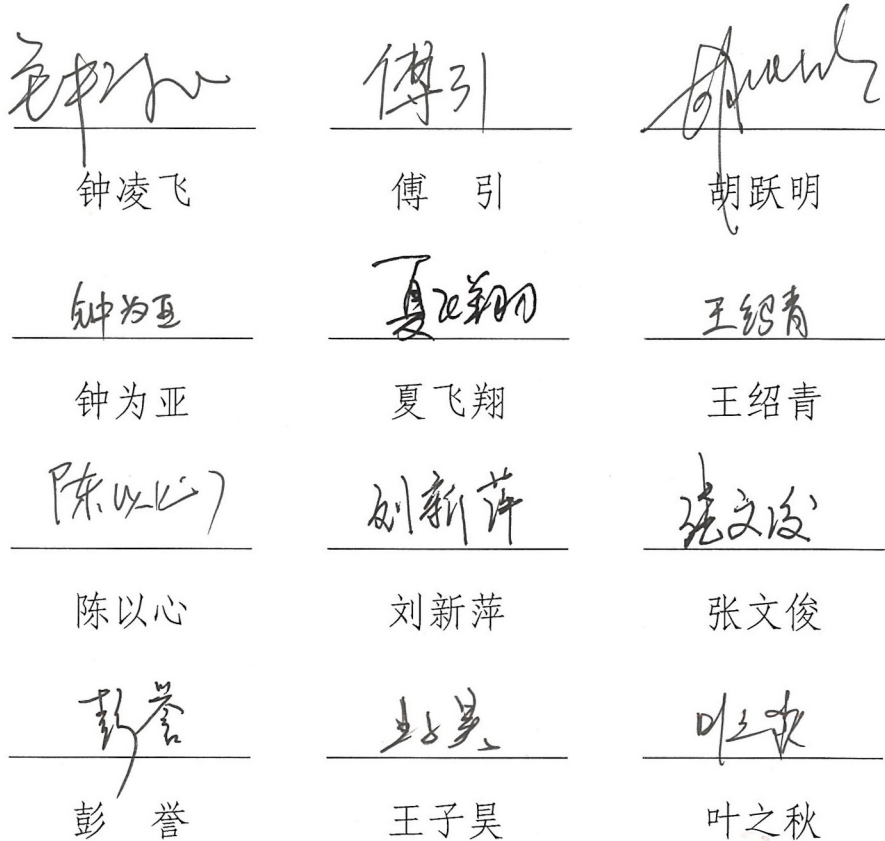 钟凌飞 傅引 胡跃明
钟凌飞 傅 引 胡跃明
钟为亚 夏飞翔 王绍青
钟为亚 夏飞翔 王绍青
陈以心 刘新萍 张文俊
陈以心 刘新萍 张文俊
彭誉 王子昊 叶之秋
彭 誉 王子昊 叶之秋